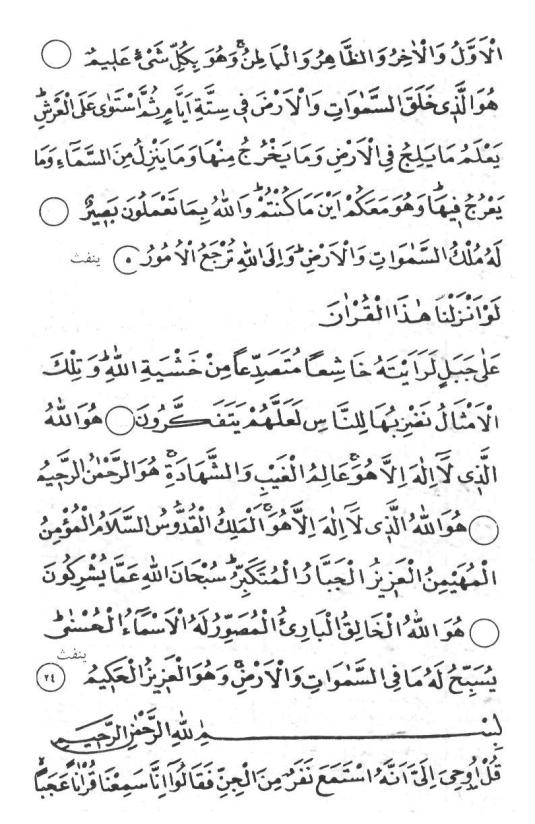 الْاَوَّلُ وَالْاٰخِرُ وَالظَّاهِرُ وَالْبَاطِنُۚ وَهُوَ بِكُلِّ شَیْءٍ عَلٖيمٌ
هُوَالَّذٖى خَلَقَ السَّمٰوَاتِ وَالْاَرْضَ فٖى سِتَّةِ اَيَّامٍ ثُمَّ اسْتَوٰى عَلَى الْعَرْشِؕ
يَعْلَمُ مَا يَلِجُ فِى الْاَرْضِ وَمَا يَخْرُجُ مِنْهَا وَمَا يَنْزِلُ مِنَ السَّمَٓاءِ وَمَا
يَعْرُجُ فٖيهَاؕ وَهُوَ مَعَكُمْ اَيْنَ مَا كُنْتُمْؕ وَاللّٰهُ بِمَا تَعْمَلُونَ بَصٖيرٌ
لَهُ مُلْكُ السَّمٰوَاتِ وَالْاَرْضِؕ وَاِلَى اللّٰهِ تُرْجَعُ الْاُمُورُ ٥ ينفث
لَوْ اَنْزَلْنَا هٰذَا الْقُرْاٰنَ
عَلٰى جَبَلٍ لَرَاَيْتَهُ خَاشِعًا مُتَصَدِّعًا مِنْ خَشْيَةِ اللّٰهِؕ وَتِلْكَ
الْاَمْثَالُ نَضْرِبُهَا لِلنَّاسِ لَعَلَّهُمْ يَتَفَكَّرُونَ هُوَ اللّٰهُ
الَّذٖى لَٓا اِلٰهَ اِلَّا هُوَۚ عَالِمُ الْغَيْبِ وَالشَّهَادَةِۚ هُوَ الرَّحْمٰنُ الرَّحٖيمُ
هُوَ اللّٰهُ الَّذٖى لَٓا اِلٰهَ اِلَّا هُوَۚ اَلْمَلِكُ الْقُدُّوسُ السَّلَامُ الْمُؤْمِنُ
الْمُهَيْمِنُ الْعَزٖيزُ الْجَبَّارُ الْمُتَكَبِّرُؕ سُبْحَانَ اللّٰهِ عَمَّا يُشْرِكُونَ
هُوَ اللّٰهُ الْخَالِقُ الْبَارِئُ الْمُصَوِّرُ لَهُ الْاَسْمَٓاءُ الْحُسْنٰىؕ
يُسَبِّحُ لَهُ مَا فِى السَّمٰوَاتِ وَالْاَرْضِۚ وَهُوَ الْعَزٖيزُ الْحَكٖيمُ ٢٤ ينفث
بِسْمِ اللّٰهِ الرَّحْمٰنِ الرَّحٖيمِ
قُلْ اُوحِىَ اِلَىَّ اَنَّهُ اسْتَمَعَ نَفَرٌ مِنَ الْجِنِّ فَقَالُٓوا اِنَّا سَمِعْنَا قُرْاٰنًا عَجَبًا